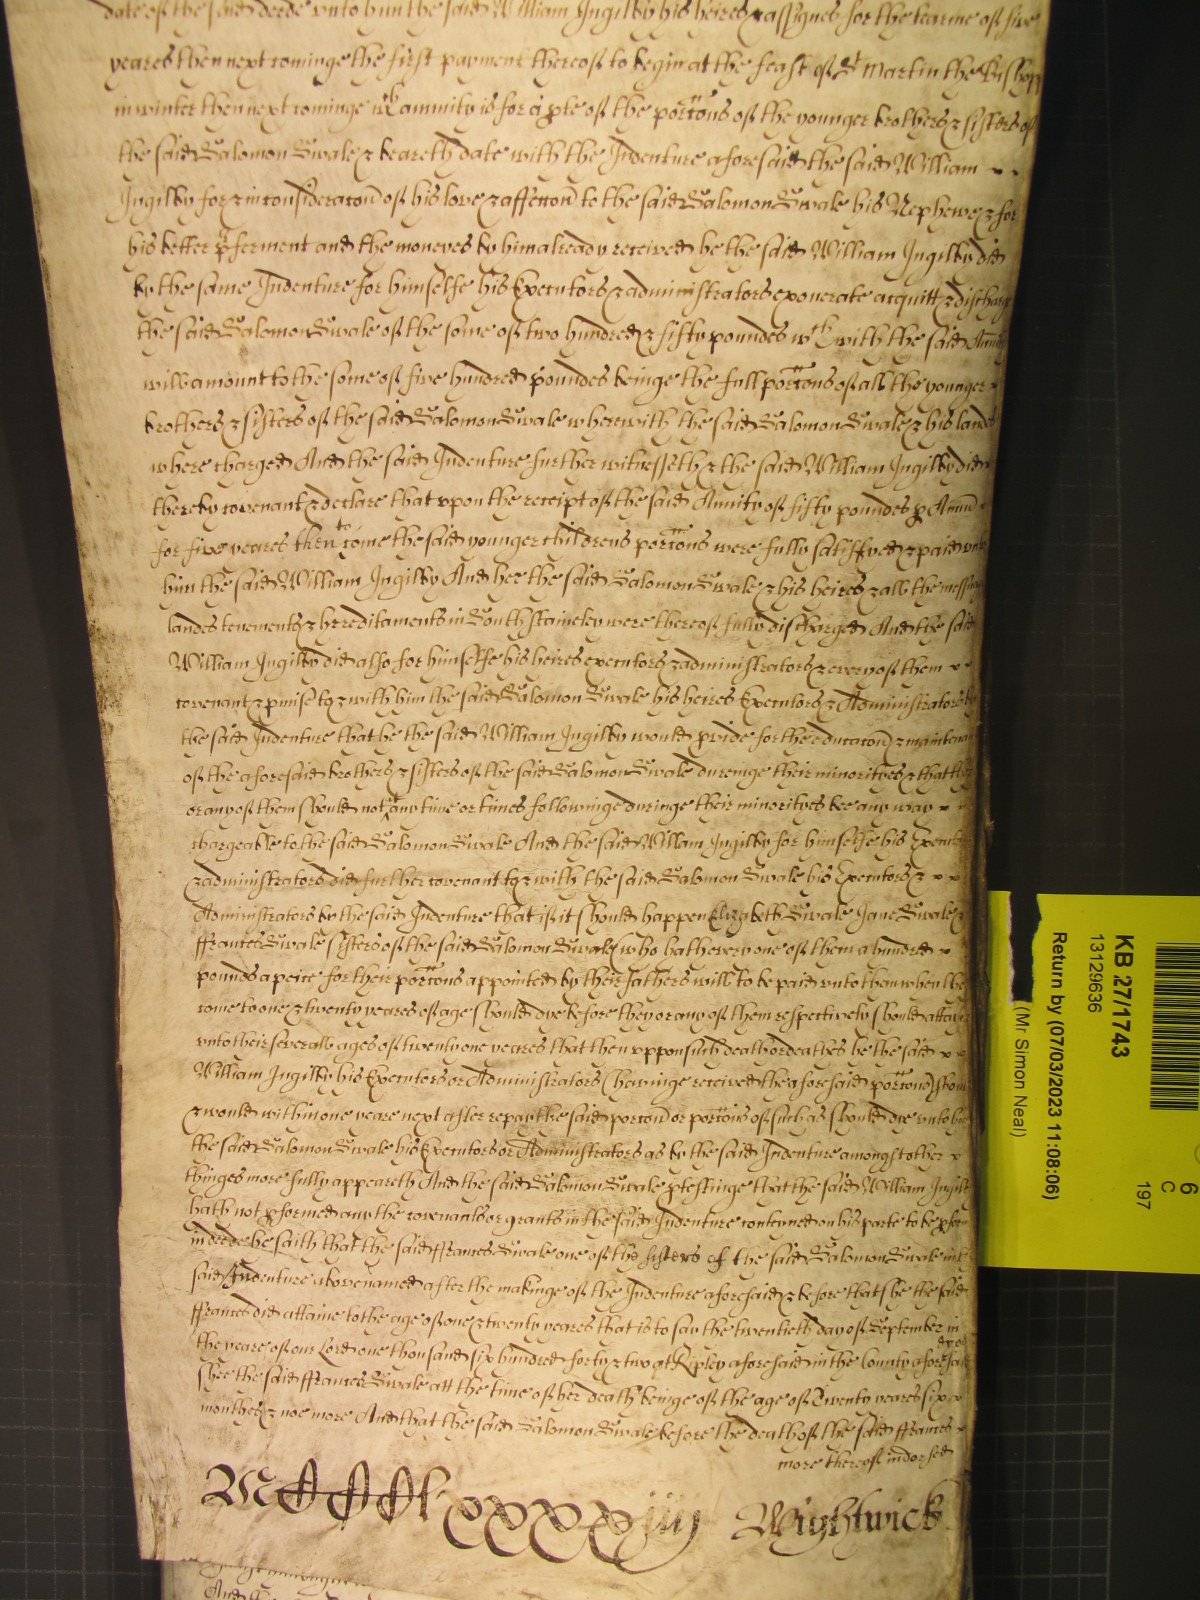 date of the said deede unto him the said William Ingilby his heires & assignes for the tearme of five
yeares then next cominge the first payment thereof to begin at the feast of St Martin the Bishop
in winter then next cominge wch annuity is for & pte of the porcons of the younger brothers & sisters of
the said Salomon Swale & beareth date with the Indenture aforesaid the said William
Ingilby for & in consideracon of his love & affeccon to the said Salomon Swale his Nephewe & for
his better pferment and the moneyes by him already received he the said William Ingilby did
by the same Indenture for himselfe his Executors & administrators exonerate acquitt & discharge
the said Salomon Swale of the some of two hundred & fifty poundes wch with the said Annuity
will amount to the some of five hundred poundes beinge the full porcons of all the younger
brothers & sisters of the said Salomon Swale wherewith the said Salomon Swale & his landes
where charged And the said Indenture further witnesseth & the said William Ingilby did
thereby covenant & declare that upon the receipt of the said Annity of fifty poundes p Annu
for five yeares then to come the said younger childrens porcons were fully satisfyed & paid unto
him the said William Ingilby And hee the said Salomon Swale & his heires & all the mess
landes tenements & hereditaments in South Staineley were thereof fully discharged And the said
William Ingilby did also for himselfe his heires executors & administrators & every of them
covenant & pmise to & with him the said Salomon Swale his heires Executors & Administrators by
the said Indenture that he the said William Ingilby would pvide for the educacon & maintenance
of the aforesaid brothers & sisters of the said Salomon Swale dureinge their minorityes & that they
or any of them should not at any time or times followinge duringe their minorityes bee any way
chargeable to the said Salomon Swale And the said William Ingilby for himselfe his Executors
& administrators did further covenant to & with the said Salomon Swale his Executors &
Administrators by the said Indenture that if it should happen Elizabeth Swale Jane Swale &
ffrances Swale sisters of the said Salomon Swale who hath every one of them a hundred
pounds a peice for their porcons appointed by their fathers will to be paid unto them when they
come to one & twenty yeares of age should dye before they or any of them respectively should attayne
unto their severall ages of twenty one yeares that then uppon such death or deathes he the said
William Ingilby his Executors or Administrators (haveinge received the aforesaid porcons) should
& would within one yeare next after repay the said porcon or porcons of such as should dye unto him
the said Salomon Swale his Executors or Administrators as by the said Indenture amongst other
thinges more fully appeareth And the said Salomon Swale ptestinge that the said William Ingilby
hath not pformed any the covenants or grants in the said Indenture conteyned on his parte to be pformed
in deede he saith that the said ffrances Swale one of the sisters of the said Salomon Swale in the
said Indenture abovenamed after the makinge of the Indenture aforesaid & before that she the said
ffrances did attaine to the age of one & twenty yeares that is to say the twentieth day of September in
the yeare of our Lord one thousand six hundred forty & two at Ripley aforesaid in the County aforesaid dyed
shee the said ffrances Swale att the time of her death beinge of the age of Twenty yeares six
monthes & noe more And that the said Salomon Swale before the death of the said ffrances
more thereof indorsed
MCCCCl xxxx iiij Wightwick
KB 27/1743
13129636
Return by (07/03/2023 11:08:06)
(Mr Simon Neal)
6
C
197